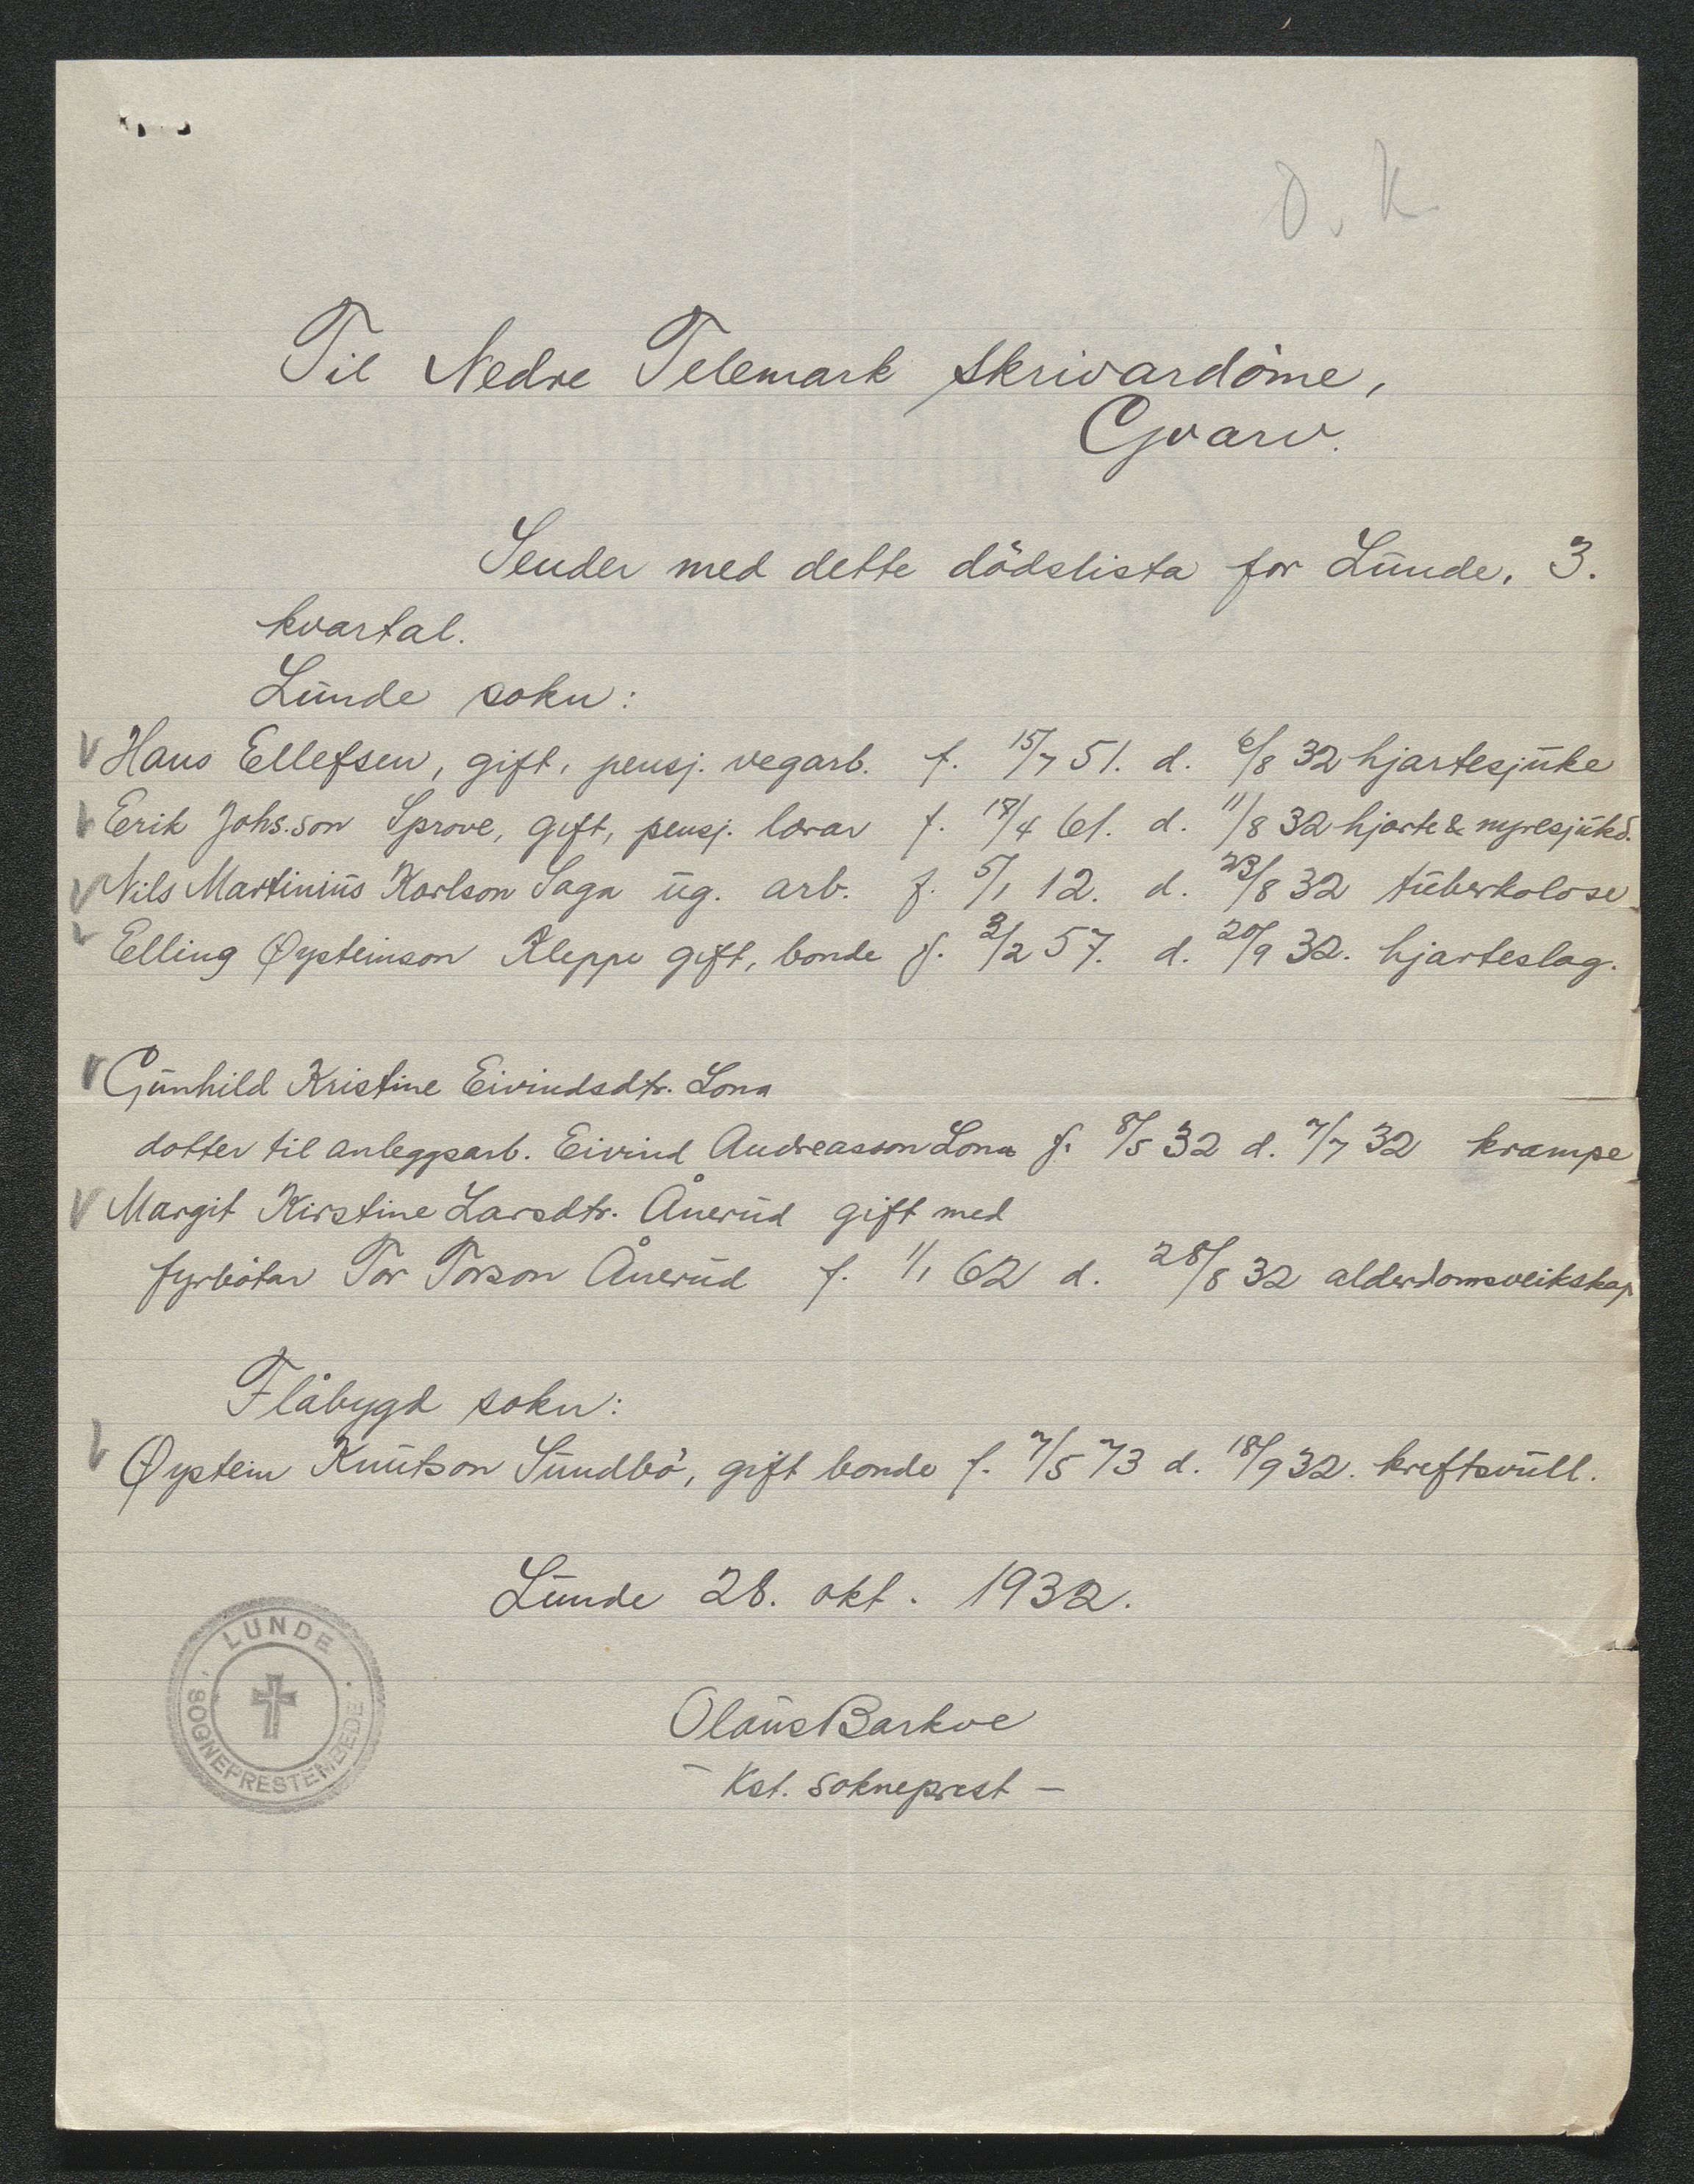 O. K
Til Nedre Telemark skrivardöme,
Gvarv.
Sender med dette dödslista for Lunde, 3.
kvartal.
Lunde sokn:
Hans Ellefsen, gift, pensj. vegarb. f. 15/7 51. d. 6/8 32 hjartesjuke
Erik Johs.son Sprove, gift, pensj. lærar f. 18/4 61. d. 11/8 32 hjarte & nyresjukd.
Nils Martinius Karlson Saga ug. arb. f. 5/1 12. d. 23/8 32 tuberkolose
Elling Øysteinson Kleppe gift, bonde f. 2/2 57. d. 20/9 32. hjarteslag.
Gunhild Kristine Eivindsdtr. Lona
dotter til anleggsarb. Eivind Andreasson Lona f. 8/5 32 d. 7/7 32 krampe
Margit Kirstine Larsdtr. Ånerud gift med
fyrbötar Tor Torson Ånerud f. 1/1 62 d. 28/8 32 alderdomsveikskap
Flåbygd sokn:
Øystein Knutson Sundbö, gift bonde f. 7/5 73 d. 18/9 32. kreftsvull.
Lunde 28. okt. 1932.
Olaus Barkve
- Kst. sokneprest -
LUNDE
SOGNEPRESTEMBEDE